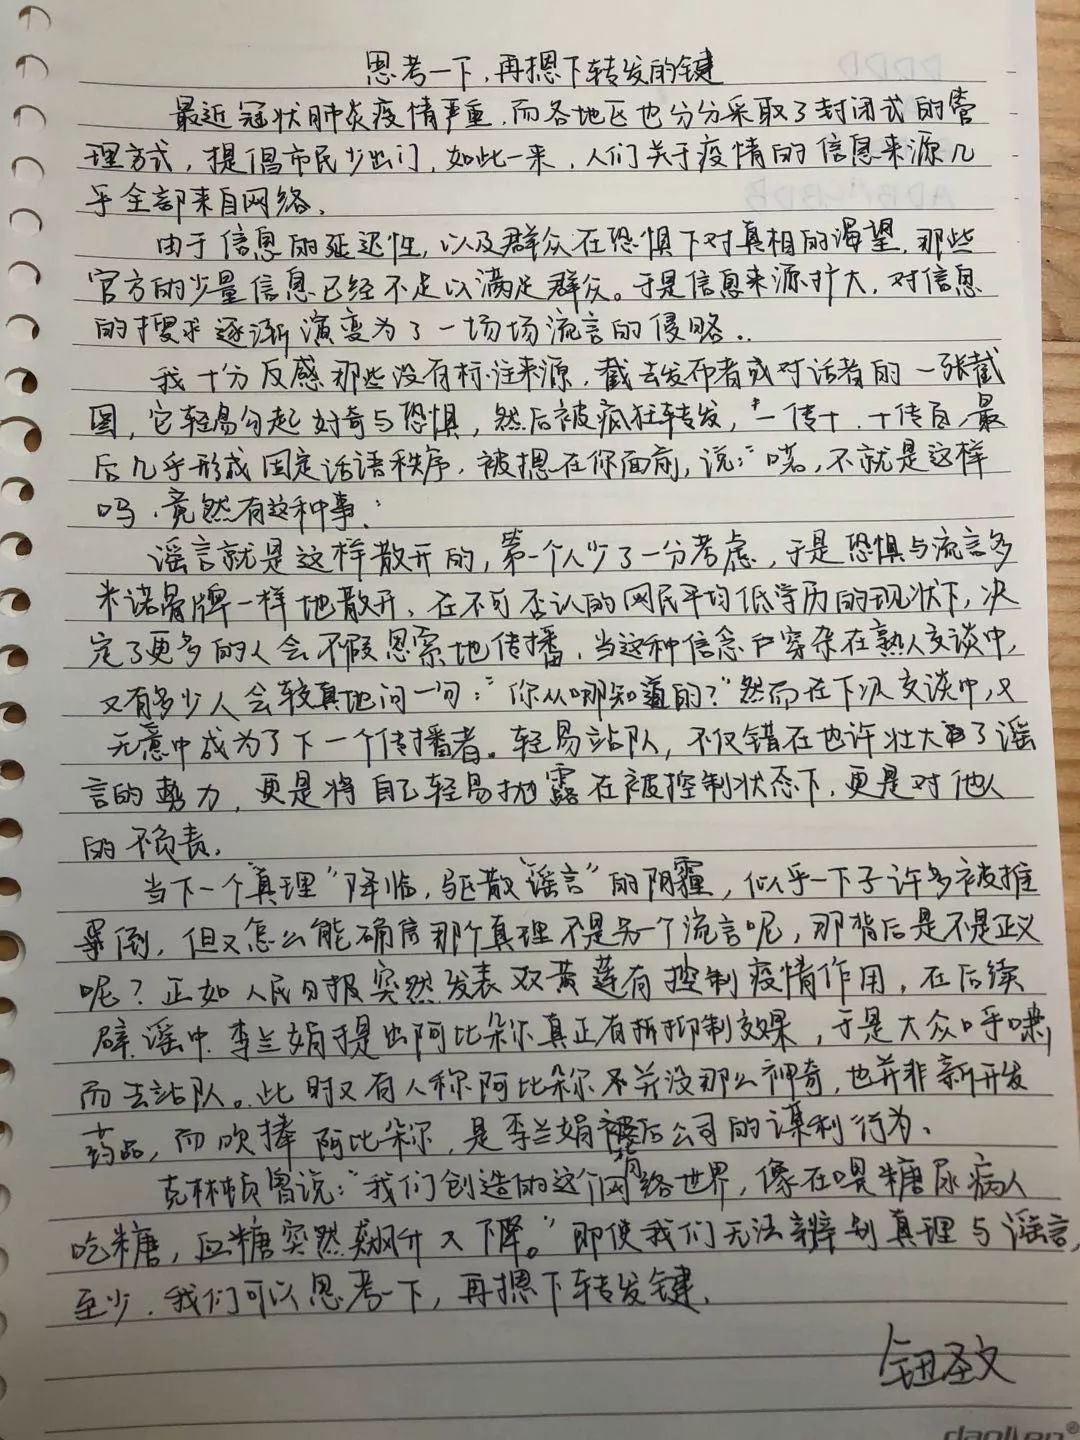 思考一下,再摁下转发的键
最近冠状肺炎疫情严重,而各地区也分分采取了封闭式的管
理方式,提倡市民少出门,如此一来,人们关于疫情的信息来源几
乎全部来自网络.
由于信息的延迟性,以及群众在恐惧下对真相的渴望,那些
官方的少量信息已经不足以满足群众。于是信息来源扩大,对信息
的搜求逐渐演变为了一场场流言的侵略..
我十分反感那些没有标注来源,截去发布者或对话者的一张截
图,它轻易勾起好奇与恐惧,然后被疯狂转发,一传十,十传百,最
后几乎形成固定话语秩序,被摁在你面前,说:“喏,不就是这样
吗,竟然有这种事.”
谣言就是这样散开的,第一个人少了一分考虑,于是恐惧与流言多
米诺骨牌一样地散开,在不可否认的网民平均低学历的现状下,决
定了更多的人会不假思索地传播,当这种信息穿杂在熟人交谈中,
又有多少人会较真地问一句:“你从哪知道的?”然而在下次交谈中,又
无意中成为了下一个传播者。轻易站队,不仅错在也许壮大了谣
言的势力,更是将自己轻易抛露在被控制状态下,更是对他人
的不负责.
当下一个“真理”降临,驱散“谣言”的阴霾,似乎一下子许多被推
倒,但又怎么能确信那个真理不是另一个流言呢,那背后是不是正义
呢?正如人民日报突然发表双黄莲有控制疫情作用,在后续
辟谣中,李兰娟于是出阿比朵尔真正有抑制效果,于是大众呼啸
而去站队。此时又有人称阿比朵尔并没那么神奇,也并非新开发
药品,而吹捧阿比朵尔,是李兰娟背后公司的谋利行为.
克林顿曾说:“我们创造的这个网络世界,像在喂糖尿病人
吃糖,血糖突然飙升又下降。”即使我们无法辨别真理与谣言,
至少,我们可以思考一下,再摁下转发键.
钮圣文